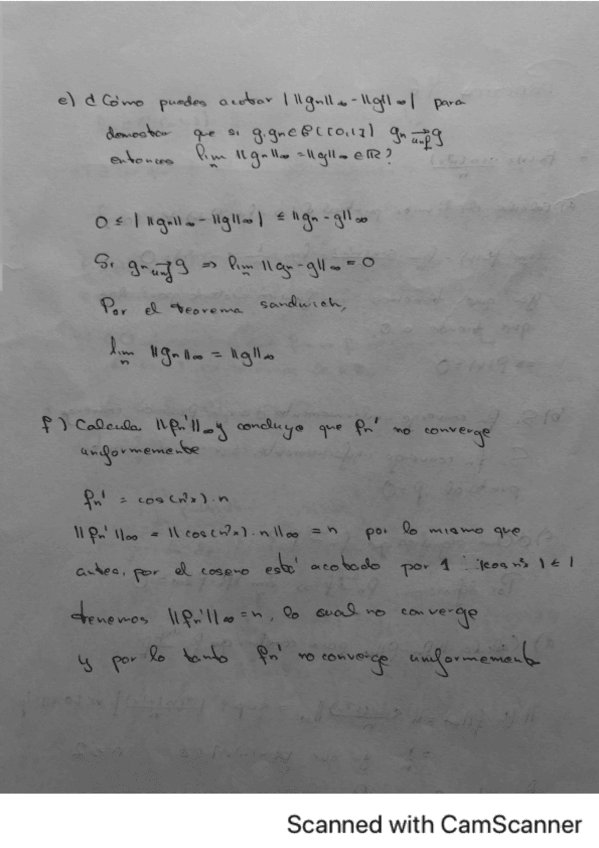 e) ¿Cómo puedes acotar | ||gn||∞ - ||g||∞ | para
demostrar que si g,gn∈C([0,1]) gn →unif g
entonces lim n ||gn||∞ = ||g||∞ ∈ℝ?
0 ≤ | ||gn||∞ - ||g||∞ | ≤ ||gn - g||∞
Si gn →unif g ⇒ lim n ||gn - g||∞ = 0
Por el teorema sandwich,
lim n ||gn||∞ = ||g||∞
f) Calcula ||fn'||∞ y concluye que fn' no converge
uniformemente
fn' = cos(n²x)·n
||fn'||∞ = ||cos(n²x)·n||∞ = n por lo mismo que
antes, por el coseno está acotado por 1
tenemos ||fn'||∞ = n, lo cual no converge
y por lo tanto fn' no converge uniformemente
Scanned with CamScanner